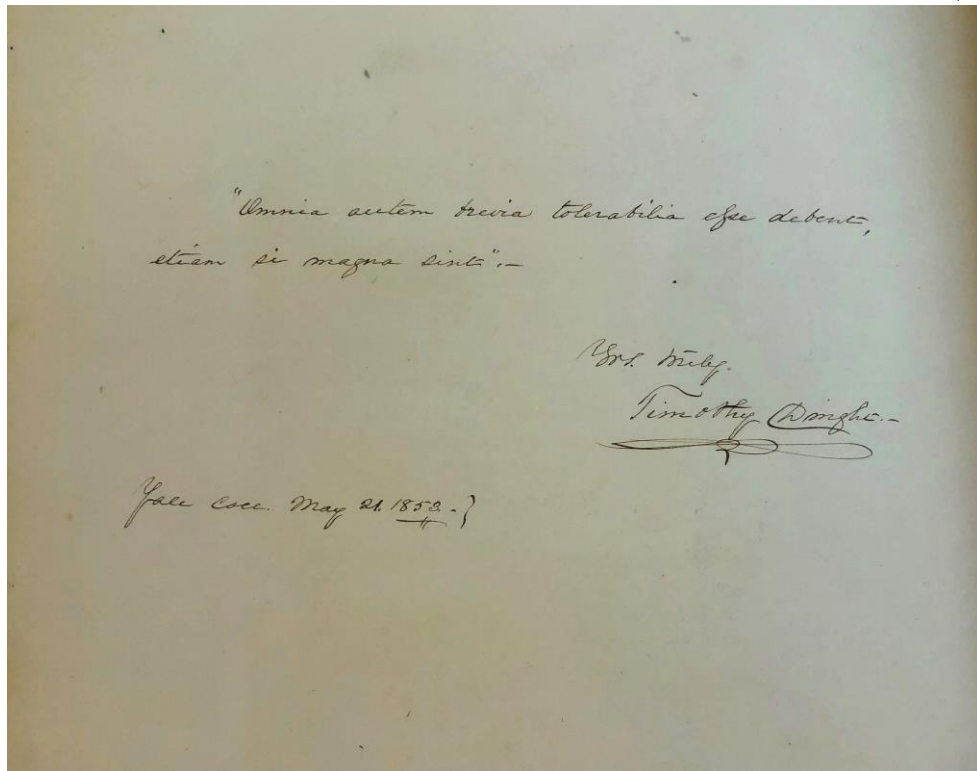 "Omnia autem brevia tolerabilia esse debent,
etiam si magna sint".—
Yrs. truly.
Timothy Dwight.—
Yale Coll. May 21. 1853.—}